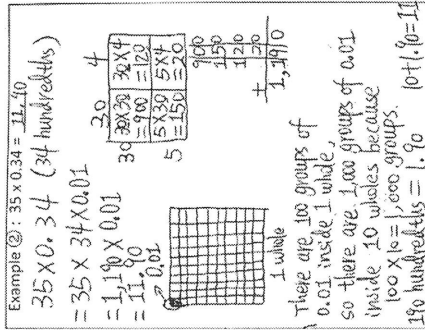 Example ②: 35 x 0.34 = 11.90
35 X 0.34 (34 hundredths)
= 35 X 34 X 0.01
= 1,190 X 0.01
= 11.90
0.01
1 whole
30 4
30 30X30 =900 30X4 =120
5 5X30 =150 5X4 =20
900
150
120
+ 20
1,190
There are 100 groups of
0.01 inside 1 whole,
so there are 1,000 groups of 0.01
inside 10 wholes because
100 X 10 = 1,000 groups.
190 hundredths = 1.90 10+1.90=11